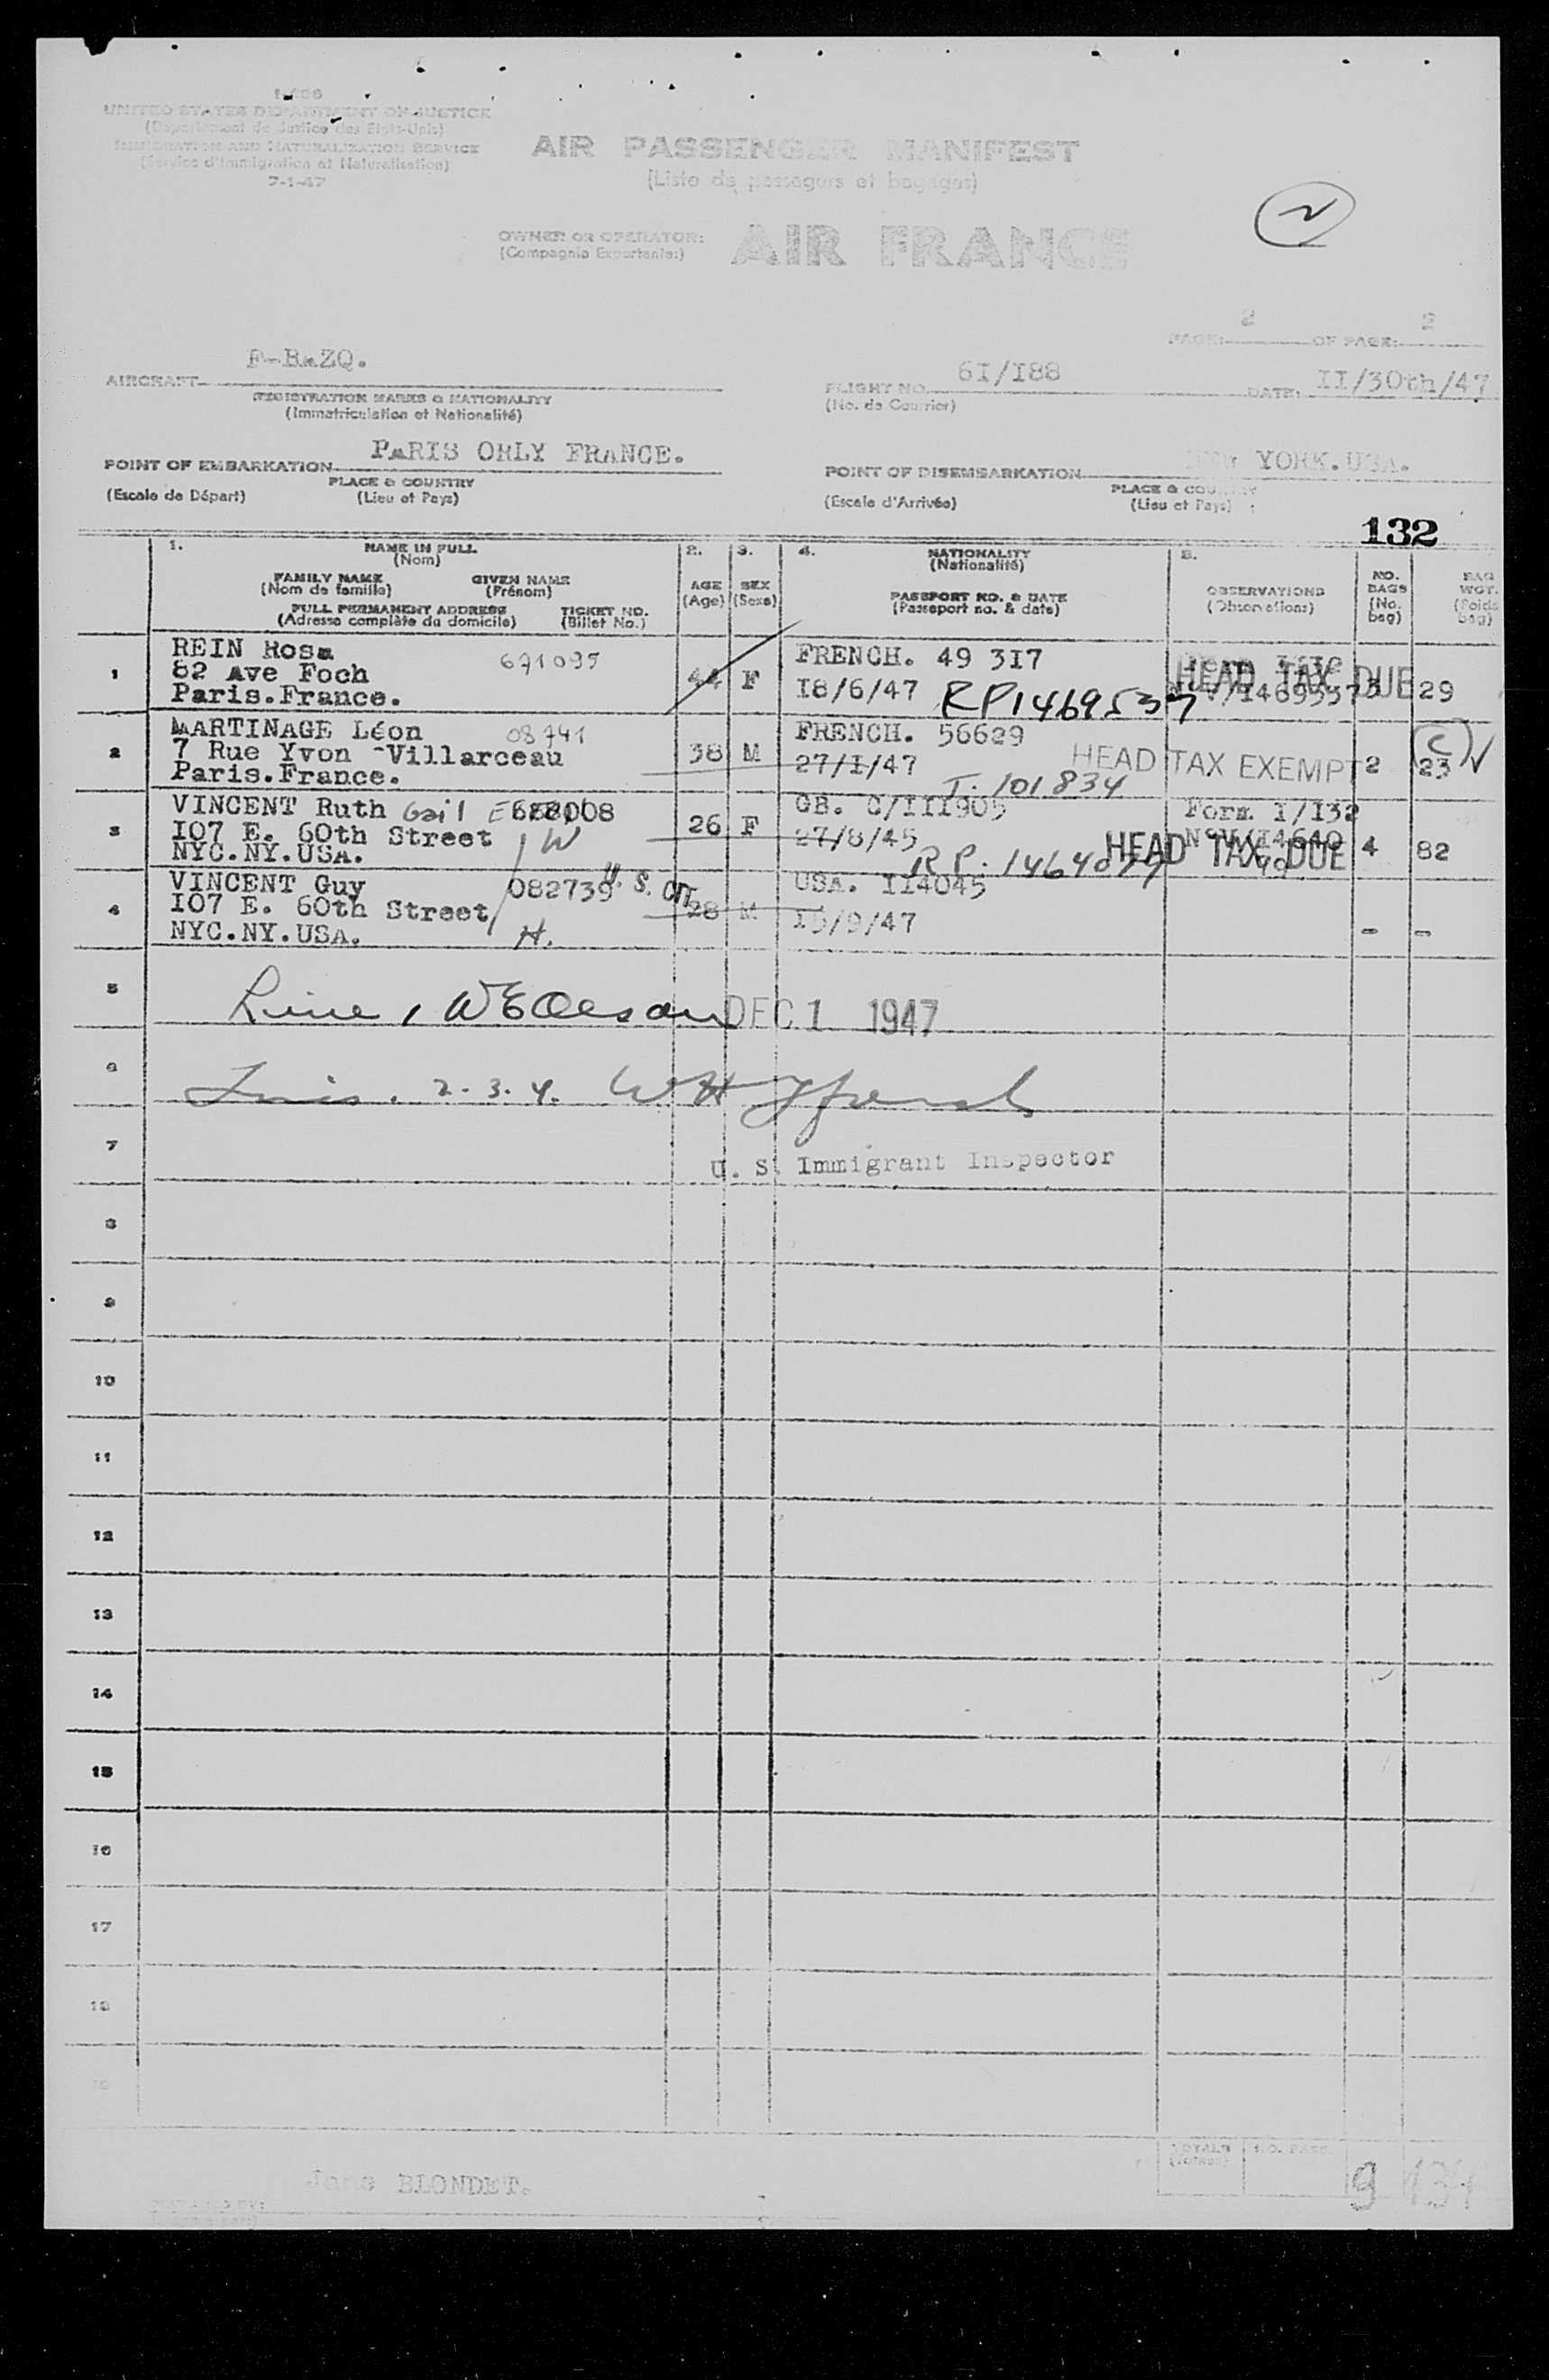 UNITED STATES DEPARTMENT OF JUSTICE
(Departement de Justice des Etats-Unis)
IMMIGRATION AND NATURALIZATION SERVICE
(Service d'Immigration et Naturalisation)
7-1-47
AIR PASSENGER MANIFEST
(Liste de passagers et bagages)
OWNER OR OPERATOR: AIR FRANCE
(Compagnie Exportante:)
2
PAGE: 2 OF PAGE: 2
AIRCRAFT
REGISTRATION MARKS & NATIONALITY
(Immatriculation et Nationalité)
FLIGHT NO. 6I/I88
(No. de Courrier)
DATE: II/30th/47
POINT OF EMBARKATION PARIS ORLY FRANCE.
PLACE & COUNTRY
(Escale de Départ) (Lieu et Pays)
POINT OF DISEMBARKATION YORK.USA.
PLACE & COUNTRY
(Escale d'Arrivée) (Lieu et Pays)
132
1. NAME IN FULL
(Nom)
FAMILY NAME GIVEN NAME
(Nom de famille) (Prénom)
FULL PERMANENT ADDRESS TICKET NO.
(Adresse complète du domicile) (Billet No.)
2. AGE (Age)
3. SEX (Sexe)
4. NATIONALITY
(Nationalité)
PASSPORT NO. & DATE
(Passeport no. & date)
OBSERVATIONS
(Observations)
NO. BAGS (No. bag)
BAG WGT. (Poids bag)
1 REIN Rosa 671095 44 F FRENCH. 49 3I7 HEAD TAX DUE 29
82 Ave Foch I8/6/47 RP1469537
Paris.France.
2 MARTINAGE Léon 08741 38 M FRENCH. 56629 HEAD TAX EXEMPT 2 23 C
7 Rue Yvon -Villarceau 27/I/47 T. 101834
Paris.France.
3 VINCENT Ruth Gail 26 F GB. C/III905 Form I/I32 4 82
I07 E. 60th Street W 27/8/45 HEAD TAX DUE
NYC.NY.USA. R.P.
4 VINCENT Guy 082739 U.S. Cit 28 M USA. II4045 - -
I07 E. 60th Street I5/9/47
NYC.NY.USA. H.
5 DEC 1 1947
6 2.3.4.
7 U. S. Immigrant Inspector
8
9
10
11
12
13
14
15
16
17
18
19
TOTALS NO. PASS. 9
BLONDET.